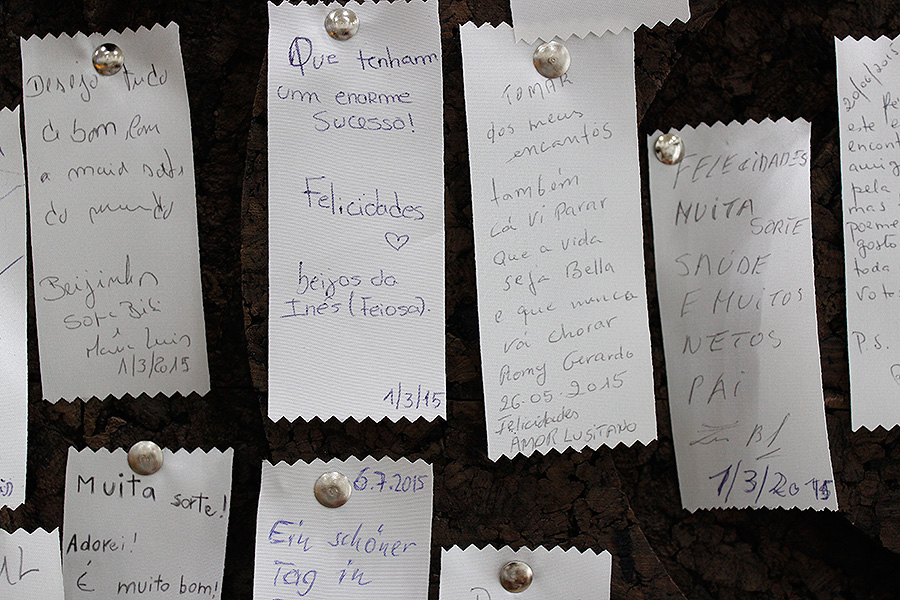 Desejo tudo
o bom com
a maior sorte
do mundo
Beijinhos
Maria Luis
1/3/2015
Que tenham
um enorme
Sucesso!
Felicidades
beijos da
Inês (Feiosa).
1/3/15
TOMAR
dos meus
encantos
também
cá vi Parar
Que a vida
seja Bella
e que nunca
vá chorar
Romy Gerardo
26.05.2015
Felicidades
AMOR LUSITANO
FELECIDADES
MUITA
SORTE
SAÚDE
E MUITOS
NETOS
PAI
1/3/2015
20/06/2015
este
encont
amig
pela
mas
gosto
toda
Voto
P.S.
Muita sorte!
Adorei!
É muito bom!
6.7.2015
Ein schöner
Tag in